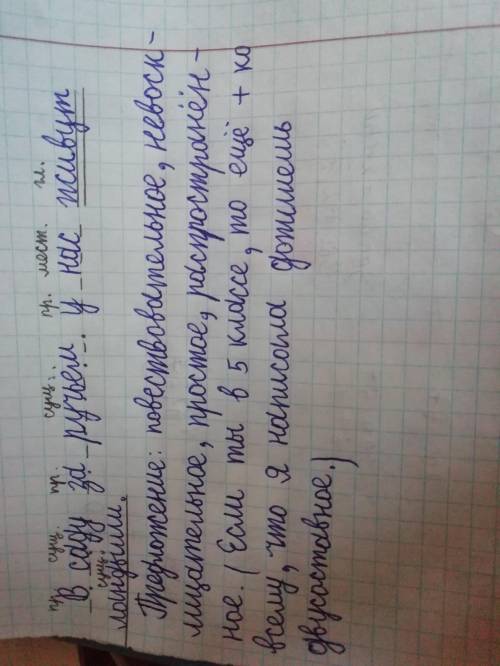 пр. сущ. пр. сущ. пр. мест. гл.
В саду за ручьём у нас живут
сущ.
ландыши.
Предложение: повествовательное, невоск-
лицательное, простое, распространён-
ное. (Если ты в 5 классе, то ещё + ко
всему, что я написала допишешь
двусоставное.)